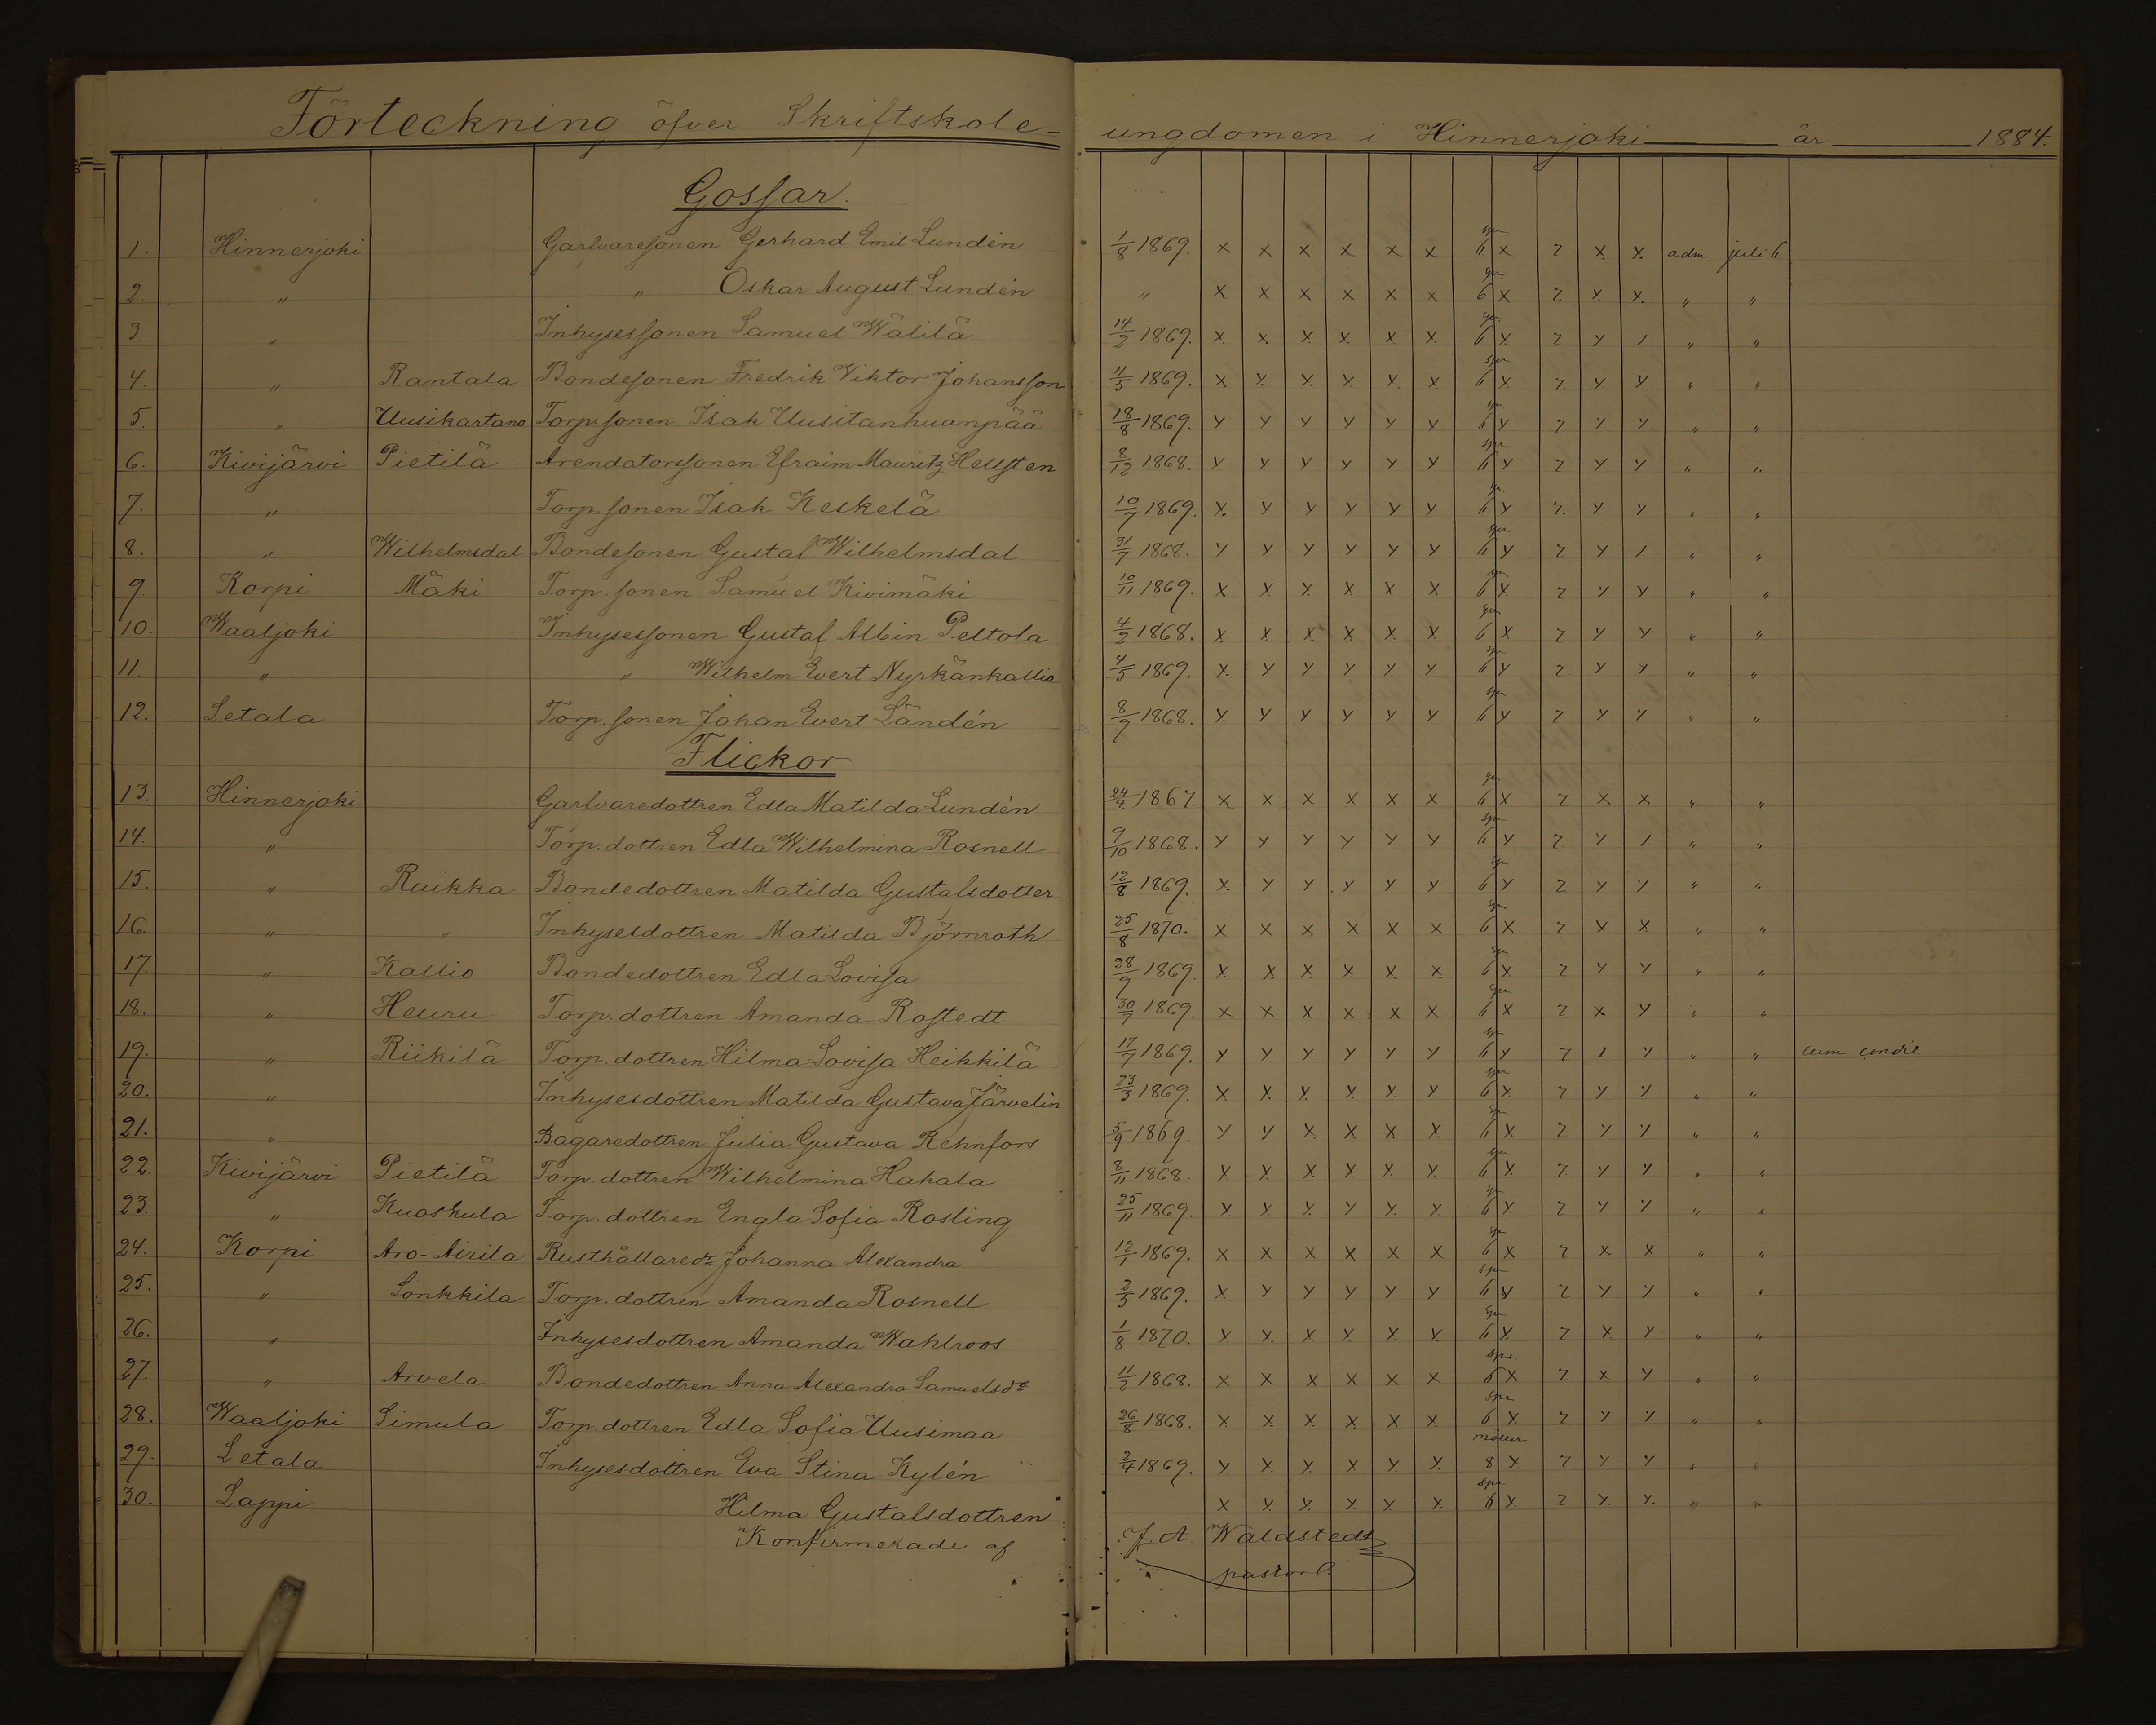 Förteckning öfver Skriftskole-ungdomen i Hinnerjoki år 1884.
Gossar.
1. Hinnerjoki Garfvaresonen Gerhard Emil Lundén 1/8 1869. x x x x x x 6 x 7 x x. adm. juli 6.
2. " " Oskar August Lundén " x x x x x x 6 x 7 x x. " "
3. " Inhysessonen Samuel Wälilä 14/2 1869. x x x x x x 6 x 7 " "
4. " Rantala Bondesonen Fredrik Viktor Johansson 11/5 1869. x x x x x x 6 x 7 x x " "
5. " Uusikartano Torp.sonen Isak Uusitanhuanpää 18/8 1869. x x x x x x 6 x 7 x x " "
6. Kivijärvi Pietilä Arendatorssonen Efraim Mauritz Hellsten 8/12 1868. x x x x x x 6 x 7 x x " "
7. " Torp.sonen Isak Keskelä 10/7 1869. x x x x x x 6 x 7 x x " "
8. " Wilhelmsdal Bondesonen Gustaf Wilhelmsdal 31/7 1868. x x x x x x 6 x 7 x " "
9. Korpi Mäki Torp.sonen Samuel Kivimäki 10/11 1869. x x x x x x 6 x 7 x x " "
10. Waaljoki Inhysessonen Gustaf Albin Peltola 4/2 1868. x x x x x x 6 x 7 x x " "
11. " " Wilhelm Evert Nyrkänkallio 4/5 1869. x x x x x x 6 x 7 x x " "
12. Letala Torp.sonen Johan Evert Landén 8/7 1868. x x x x x x 6 x 7 x x " "
Flickor
13. Hinnerjoki Garfvaredottren Edla Matilda Lundén 24/4 1867 x x x x x x 6 x 7 x x " "
14. " Torp.dottren Edla Wilhelmina Rosnell 9/10 1868. x x x x x x 6 x 7 x " "
15. " Ruikka Bondedottren Matilda Gustafsdotter 12/8 1869. x x x x x x 6 x 7 x x " "
16. " " Inhysesdottren Matilda Björnroth 25/8 1870. x x x x x x 6 x 7 x x " "
17. " Kallio Bondedottren Edla Lovisa 28/9 1869. x x x x x x 6 x 7 x x " "
18. " Heuru Torp.dottren Amanda Rostedt 30/7 1869. x x x x x x 6 x 7 x x " "
19. " Riikilä Torp.dottren Hilma Lovisa Heikkilä 17/7 1869. x x x x x x 6 x 7 x " " cum condit
20. " Inhysesdottren Matilda Gustava Järvelin 23/3 1869. x x x x x x 6 x 7 x x " "
21. " Bagaredottren Julia Gustava Rehnfors 5/9 1869. x x x x x x 6 x 7 x x " "
22. Kivijärvi Pietilä Torp.dottren Wilhelmina Hahala 8/11 1868. x x x x x x 6 x 7 x x " "
23. " Kuoskula Torp.dottren Engla Sofia Rosling 25/11 1869. x x x x x x 6 x 7 x x " "
24. Korpi Aro-Airila Rusthållaredr Johanna Alexandra 12/1 1869. x x x x x x 6 x 7 x x " "
25. " Sonkkila Torp.dottren Amanda Rosnell 2/5 1869. x x x x x x 6 x 7 x x " "
26. " Inhysesdottren Amanda Wahlroos 1/8 1870. x x x x x x 6 x 7 x x " "
27. " Arvela Bondedottren Anna Alexandra Samuelsdr 11/2 1868. x x x x x x 6 x 7 x x " "
28. Waaljoki Simula Torp.dottren Edla Sofia Uusimaa 26/8 1868. x x x x x x 6 x 7 x x " "
29. Letala Inhysesdottren Eva Stina Kylén 2/4 1869. x x x x x x 8 x 7 x x " "
30. Lappi Hilma Gustafsdottren x x x x x x 6 x 7 x x. " "
Konfirmerade af J. A. Waldstedt
pastor